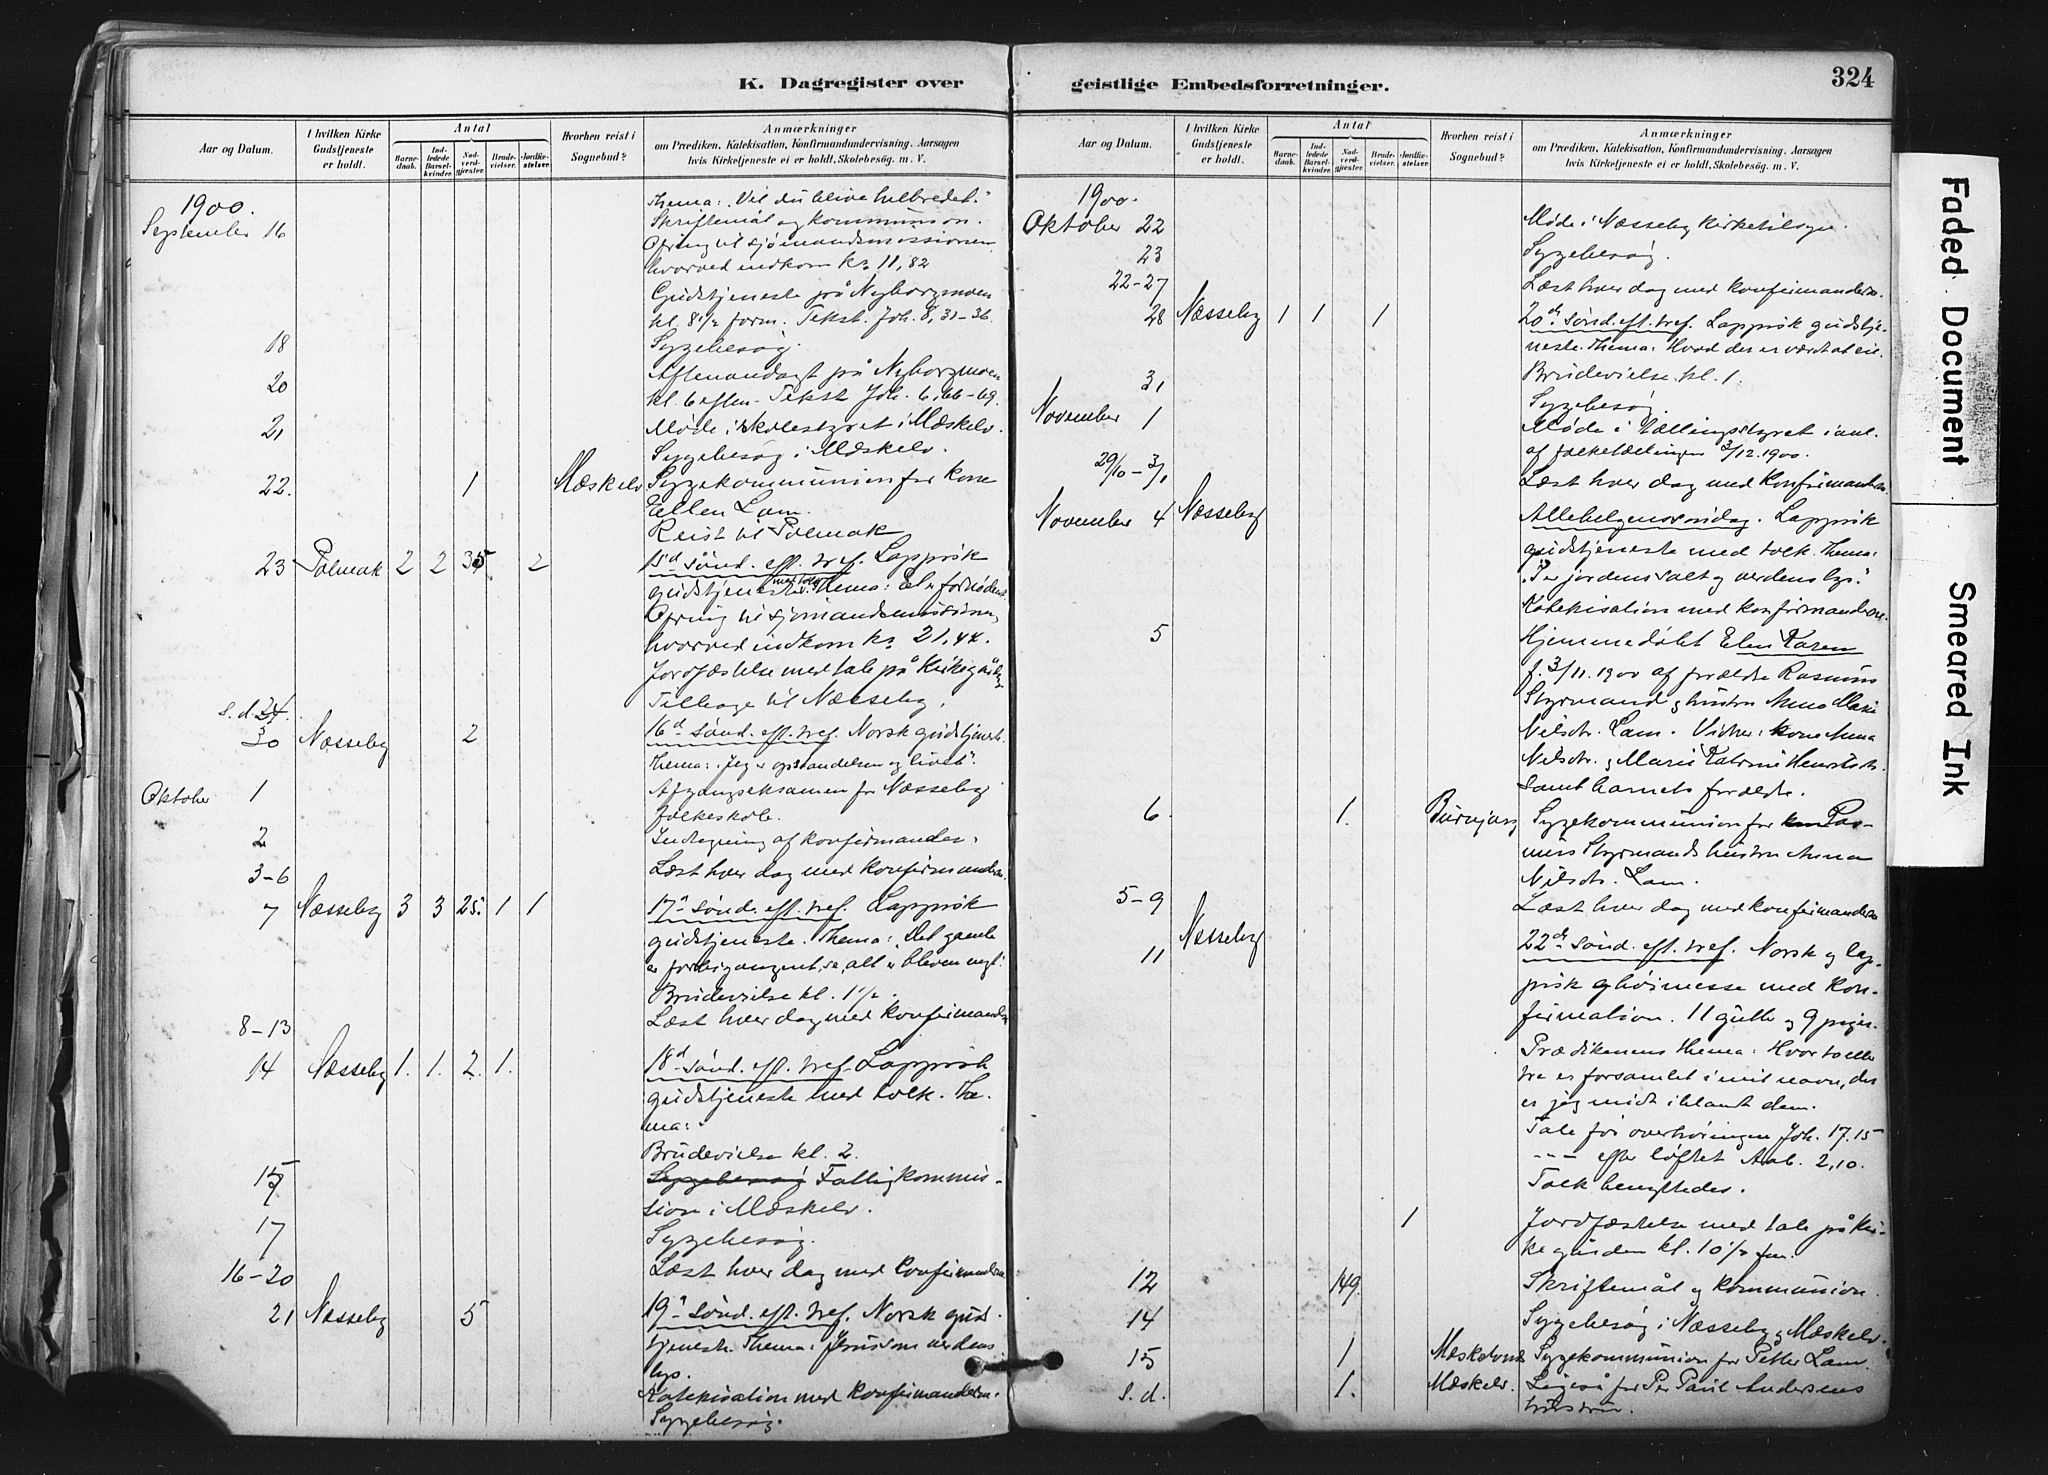 K. Dagregister over
Aar og Datum.
I hvilken Kirke Gudstjeneste er holdt.
Antal
Barnedaab.
Indledede Barselkvinder.
Nadverdgjæster.
Brudevielser.
Jordfæstelser.
Hvorhen reist i Sognebud?
Anmærkninger
om Prædiken, Katekisation, Konfirmandundervisning. Aarsagen
hvis Kirketjeneste ei er holdt, Skolebesøg. m. V.
1900.
September 16
Thema: "Vil du blive helbredet."
Skriftemål og kommunion.
Ofring til sjømandsmissionen
hvorved indkom kr. 11,82
Gudstjeneste på Nyborgmoen
kl. 8 1/2 form. Tekst. Joh. 8, 31-36.
18 Sygebesøg.
20 Aftenandagt på Nyborgmoen
kl. 6 eftm. Tekst Joh. 6, 66-69.
21 Møde i skolestyret i Mæskelv.
Sygebesøg i Mæskelv.
22. 1 Mæskelv Sygekommunion for kone
Ellen Lam.
Reist til Polmak
23 Polmak 2 2 35 2 15d sønd. eft. tref. Lappisk
gudstjeneste med tolk. Thema: Et er fornødent
Ofring til sjømandsmissionen,
hvorved indkom kr. 21,44.
Jordfæstelse med tale på kirkegården
s. d. 24. Tilbage til Næsseby.
30 Næsseby 2 16d sønd. eft. tref. Norsk gudstjeneste.
Thema: "Jeg er opstandelsen og livet".
Oktober 1 Afgangseksamen for Næsseby
folkeskole.
2 Indtegning af konfirmander.
3-6 Læst hver dag med konfirmanderne.
7 Næsseby 3 3 25. 1 1 17d sønd. eft. tref. Lappisk
gudstjeneste. Thema: "Det gamle
er forbigangent, se, alt er bleven nyt".
Brudevielse kl. 1 1/2.
8-13 Læst hver dag med konfirmanderne
14 Næsseby 1. 1. 2. 1. 18d sønd. eft. tref. Lappisk
gudstjeneste med tolk. The-
ma:
Brudevielse kl. 2.
15 Sygebesøg Fattigkommis-
sion i Mæskelv.
17 Sygebesøg.
16-20 Læst hver dag med konfirmanderne
21 Næsseby 5 19d sønd. eft. tref. Norsk guds-
tjeneste. Thema: Jesus som verdens
lys.
Katekisation med konfirmanderne.
Sygebesøg.
geistlige Embedsforretninger.
324
Aar og Datum.
I hvilken Kirke Gudstjeneste er holdt.
Antal
Barnedaab.
Indledede Barselkvinder.
Nadverdgjæster.
Brudevielser.
Jordfæstelser.
Hvorhen reist i Sognebud?
Anmærkninger
om Prædiken, Katekisation, Konfirmandundervisning. Aarsagen
hvis Kirketjeneste ei er holdt, Skolebesøg. m. V.
1900.
Oktober 22 Møde i Næsseby kirketilsyn.
23 Sygebesøg.
22-27 Læst hver dag med konfirmanderne.
28 Næsseby 1 1 1 20de sønd. eft. tref. Lappisk gudstje-
neste. Thema: Hvad der er værdt at eie.
Brudevielse kl. 1.
31 Sygebesøg.
November 1 Møde i tællingsstyret i anl.
af folketællingen 3/12. 1900.
29/10 - 3/11 Læst hver dag med konfirmanderne.
November 4 Næsseby Allehelgenssøndag. Lappisk
gudstjeneste med tolk. Thema:
"I er jordens salt og verdens lys."
Katekisation med konfirmanderne.
5 Hjemmedøbt Elen Karen
f. 3/11. 1900 af forældre Rasmus
Styrmand og hustru Anna Marie
Nilsdtr. Lam. Vidner: kone Anna
Nilsdtr. og Marie Katrine Henriksdtr.
samt barnets forældre.
6. 1. Burnjarg Sygekommunion for Ras-
mus Styrmands hustru Anna
Nilsdtr. Lam.
5-9 Læst hver dag med konfirmanderne
11 Næsseby 22de sønd. eft. tref. Norsk og lap-
pisk høimesse med kon-
firmation. 11 gutter og 9 piger.
Prædikenens thema: Hvor to eller
tre er forsamlet i mit navn, der
er jeg midt iblandt dem.
Tale før overhøringen Joh. 17. 15
--- efter løftet Aab. 2, 10.
Tolk benyttedes.
1 Jordfæstelse med tale på kir-
kegården kl. 10 1/2 fm.
12 149. Skriftemål og kommunion.
14 Sygebesøg i Næsseby og Mæskelv.
15 1 Sygekommunion for Petter Lam.
s. d. 1. Mæskelv. Ligeså for Per Paul Andersens
hustru.
Faded Document
Smeared Ink